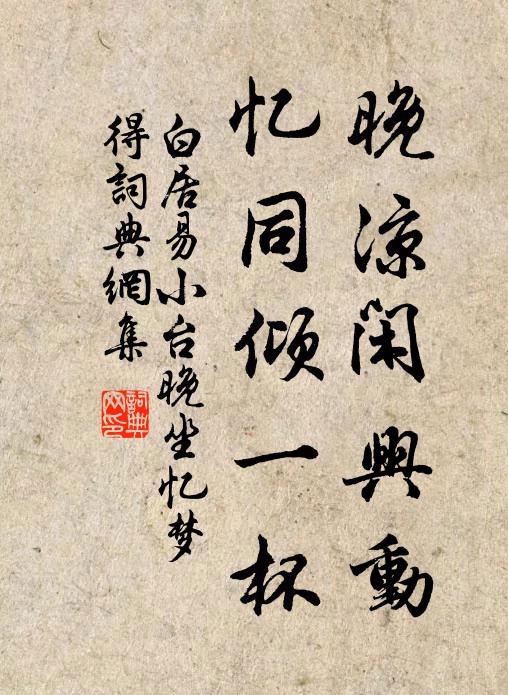 晚凉闲興動
忆同倾一杯
白居易小台晚坐忆梦
得詞典網集
詞典网印